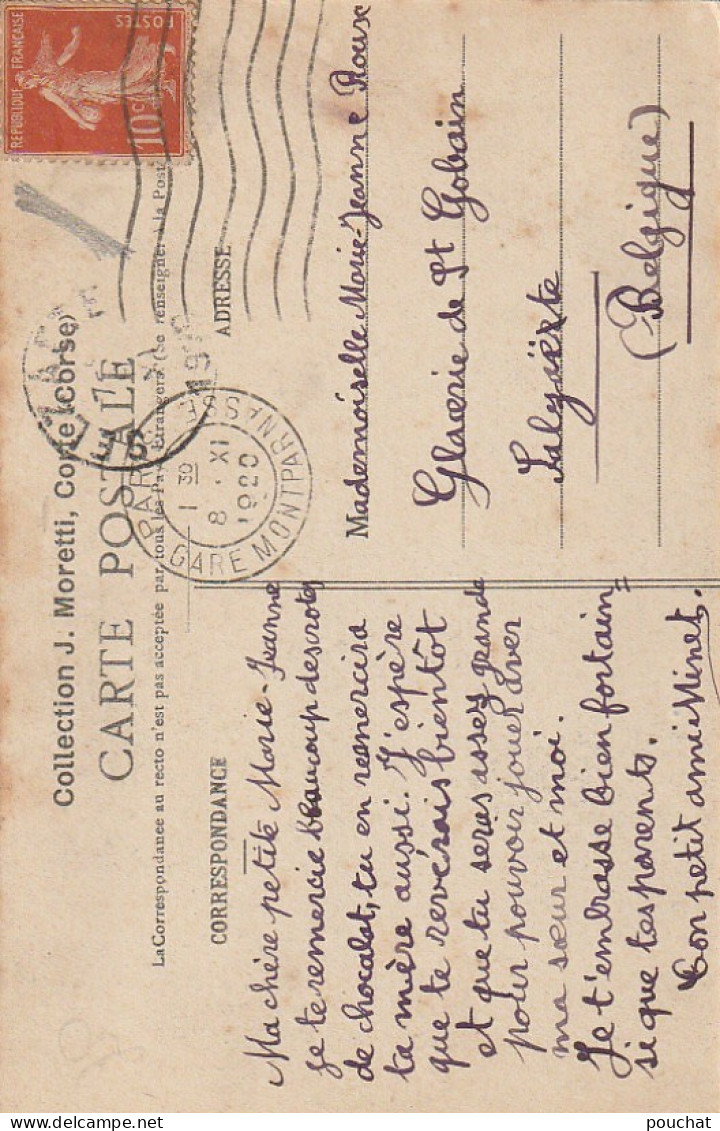 Collection J. Moretti, Corte (Corse)
CARTE POSTALE
La Correspondance au recto n'est pas acceptée par tous les Pays Étrangers (Se renseigner à la Poste
CORRESPONDANCE
Ma chère petite Marie-Jeanne
je te remercie beaucoup des rotes
de chocolat, tu en remercira
ta mère aussi. J'espère
que te reverais bientôt
et que tu seras assez grande
pour pouvoir jouer aver
ma sœur et moi.
Je t'embrasse bien fortain=
si que tes parents.
Ton petit ami Minet.
ADRESSE
Mademoiselle Marie-Jeanne Roux
Glacerie de St Gobain
(Belgique)
REPUBLIQUE FRANÇAISE
POSTES
10c
PARIS
GARE MONTPARNASSE
1 30
8 . XI
1920
pouchat